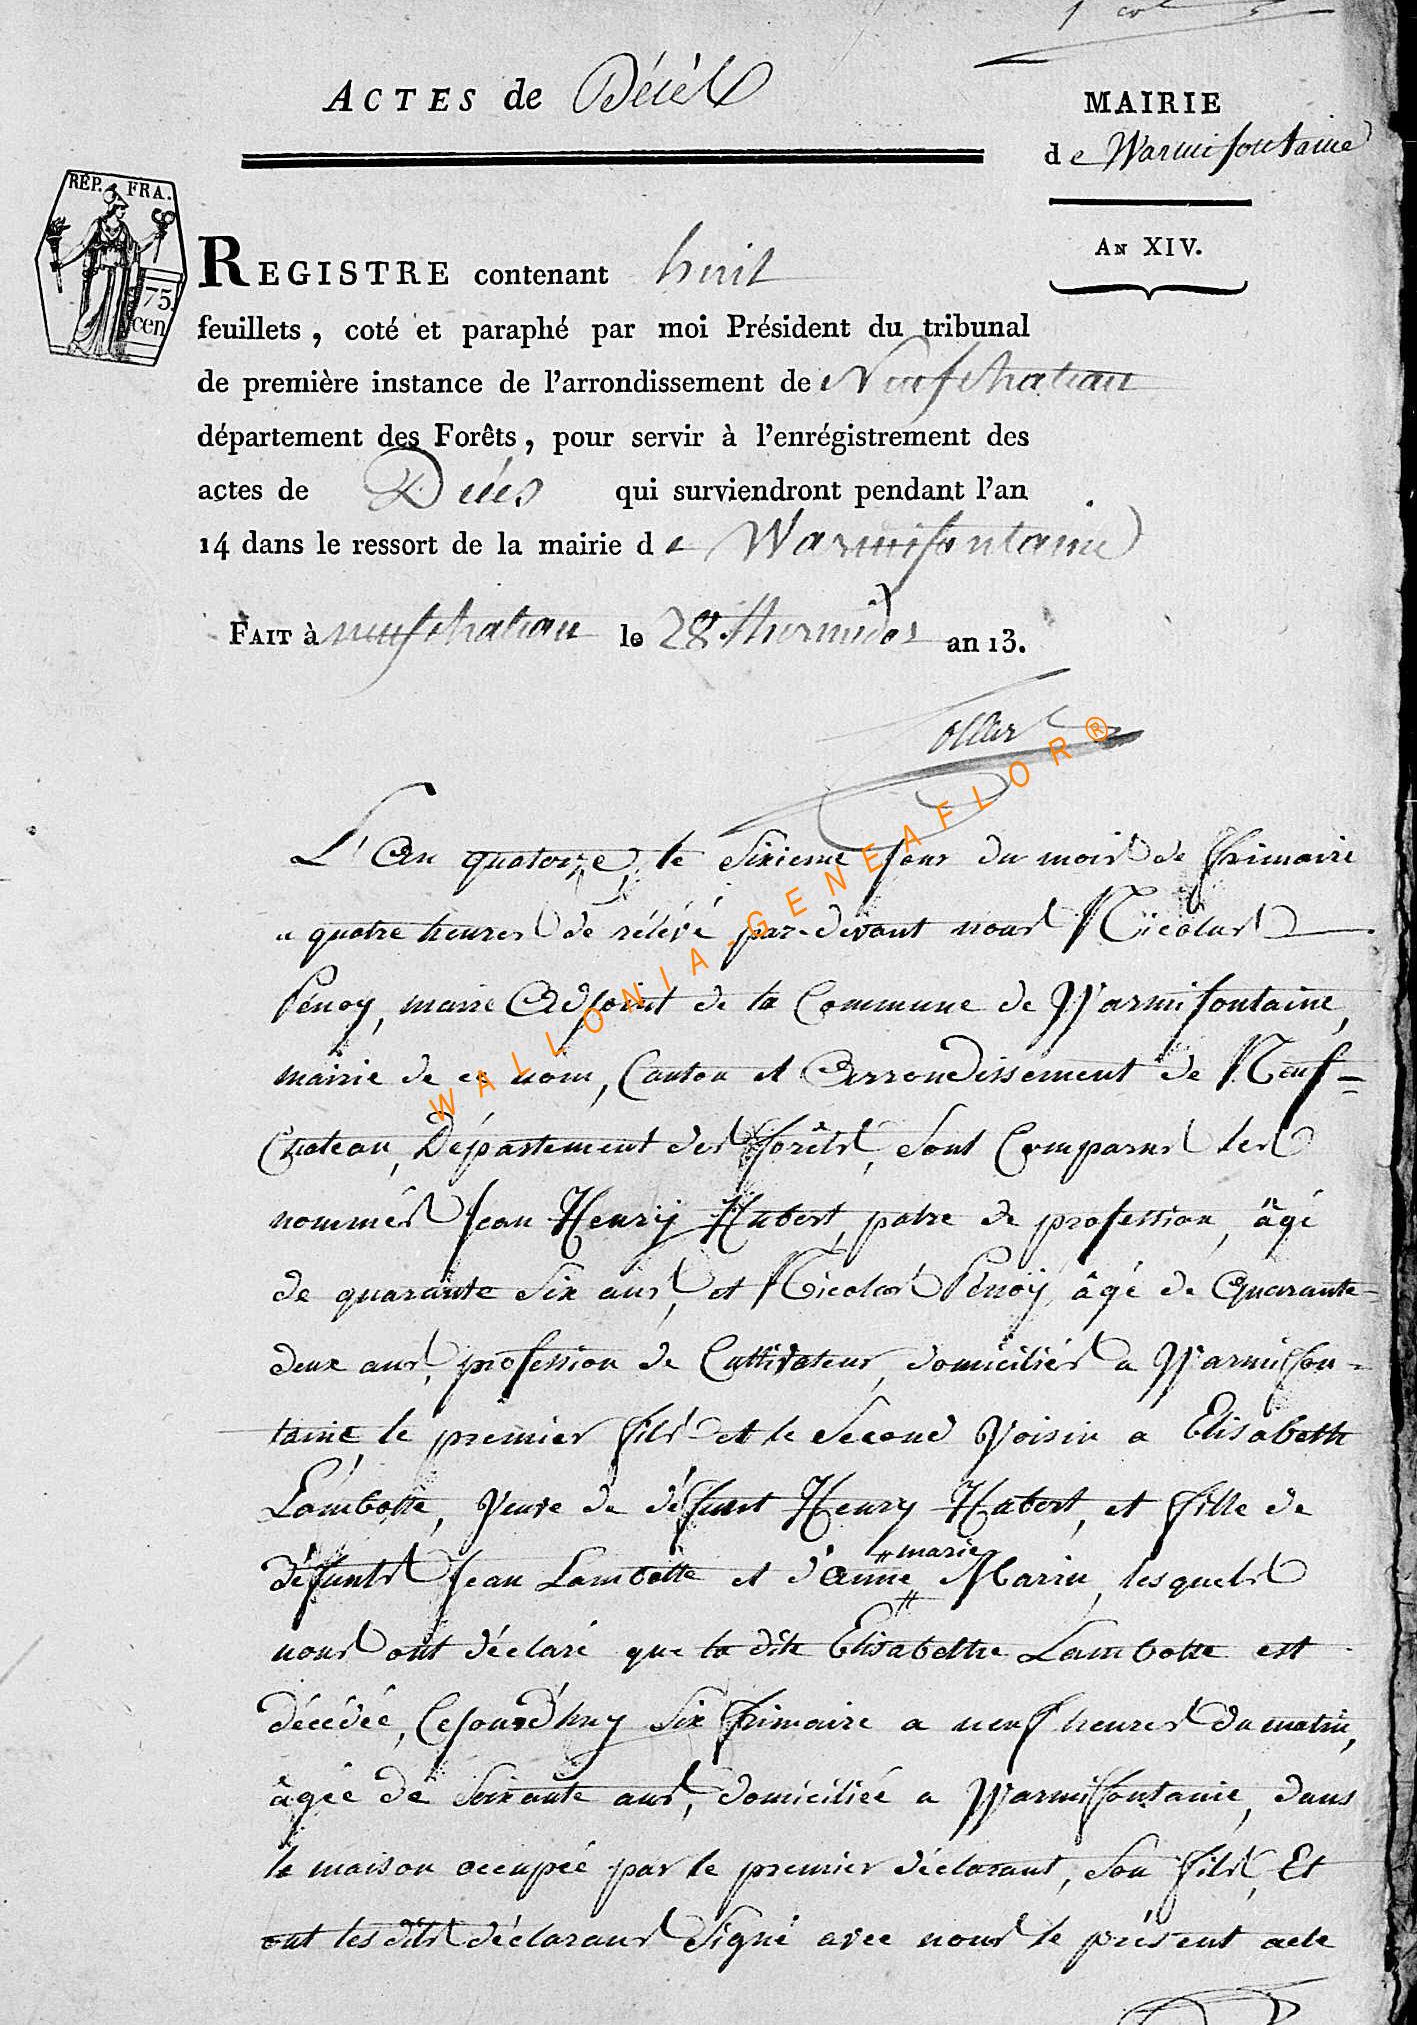 1er
ACTES de Décès
MAIRIE
de Warmifontaine
AN XIV.
RÉP. FRA.
75.
cen
REGISTRE contenant huit
feuillets, coté et paraphé par moi Président du tribunal
de première instance de l'arrondissement de Neufchateau
département des Forêts, pour servir à l'enrégistrement des
actes de Décés qui surviendront pendant l'an
14 dans le ressort de la mairie de Warmifontaine
FAIT à neufchateau le 28 thermidor an 13.
Collar
WALLONIA-GENEAFLOR®
L'An quatorze, le Sixieme Jour du mois de frimaire
a quatre heures de rélévé par-devant nous Nicolas
Pénoy, maire Adjoint de la Commune de Warmifontaine,
mairie de ce nom, Canton et Arrondissement de Neuf=
Chateau, Département des forêts, sont Comparus les
nommés Jean Henry Hubert, patre de profession, âgé
de quarante Six ans, et Nicolas Pénoÿ, âgé de Quarante=
deux ans, profession de Cultivateur, domiciliés a Warmifon=
taine le premier fils et le Second Voisin a Elisabethe
Lambotte, Veuve de défunt Henry Hubert, et fille de
défunts Jean Lambotte et d'anne # marie Marin, lesquels
nous ont déclaré que la dite Elisabethe Lambotte est
décédée, Cejourd'huy Six frimaire a neuf heures du matin,
âgée de Soixante ans, domiciliée a Warmifontaine, dans
la maison occupée par le premier déclarant, Son fils, Et
ont les dits déclarans Signé avec nous le présent acte